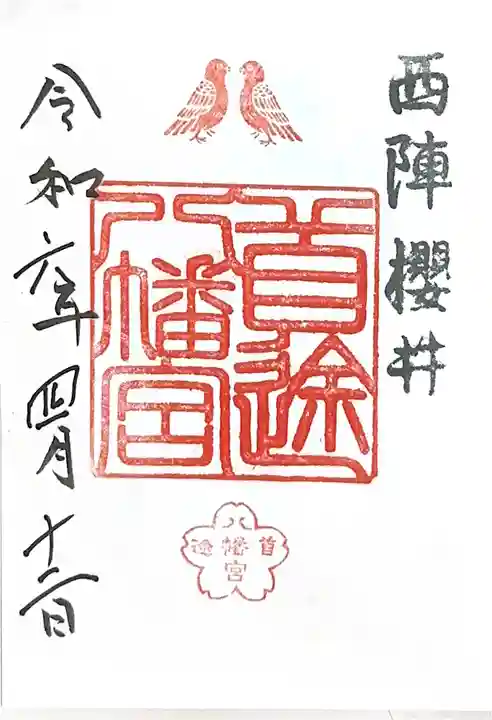 西陣櫻井
首途
八幡宮
首途八幡宮
令和六年四月十二日